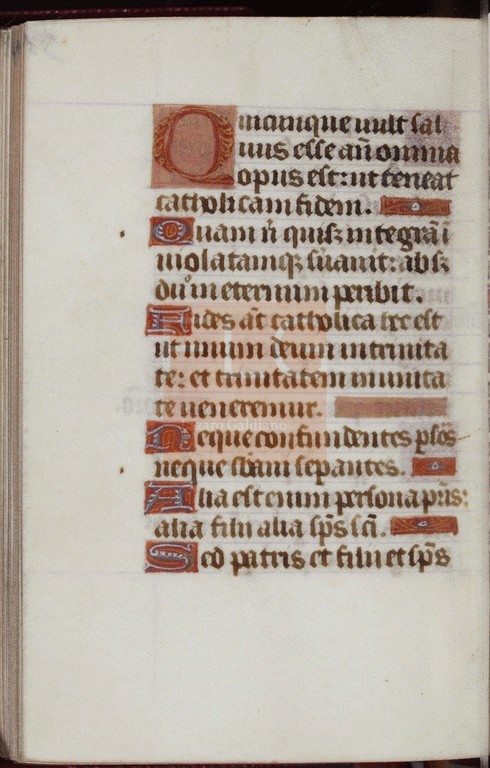 Quicunque uult sal
uus esse an̄ omnia
opus est: ut teneat
catholicam fidem.
Quam n̄ quisq integrā ī
uiolatamqꝫ s̄uauit: absqꝫ
du in eternum peribit.
Fides aūt catholica hec est
ut unum deum in trinita
te: et trinitatem in unita
te ueneremur.
zaro Galdiano
Neque confundentes p̄sōs
neque sb̄am sepantes.
Alia est enim persona pr̄is:
alia filii alia sp̄s sc̄i.
Sed patris et filii et sp̄s